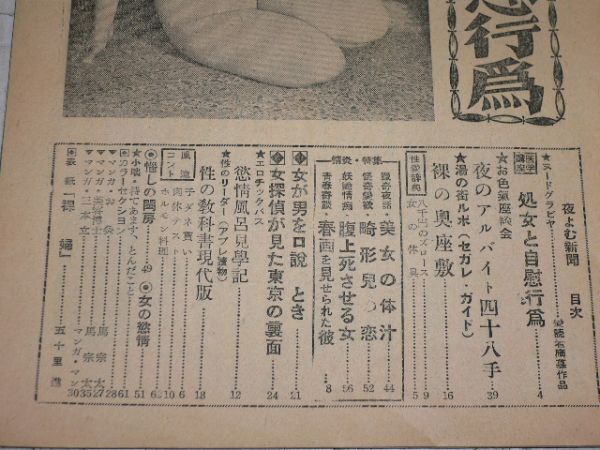 慰行爲
夜よむ新聞 目次
★ヌードグラビヤ
医学講座 処女と自慰行爲 4
★お色氣座談会
夜のアルバイト四十八手 39
★湯の街ルポ(セガレ・ガイド)
裸の奥座敷 16
八千三のズロース 9
女の体臭 5
情炎・特集
獵奇夜話・美女の体汁 44
怪奇愛慾・畸形兒の恋 52
妖艶情痴・腹上死させる女 56
青春春談・春画を見せられた彼 8
女が男を口說くとき 21
女探偵が見た東京の裏面 24
★エロチックバス
慾情風呂見學記 12
★性のリーダー(アプレ讀物)
性の教科書現代版 18
コント
子ダネ買い 6
肉体テスト 10
ホルモン料理 6
惱しの閨房 49
女の慾情 51
★小咄・持てあます、とんだこと
カラーセクション 61
マンガ・お祭 28
馬宗太 27
マンガ・三本立 35
マンガ・マン 30
表紙「裸婦」 五十里